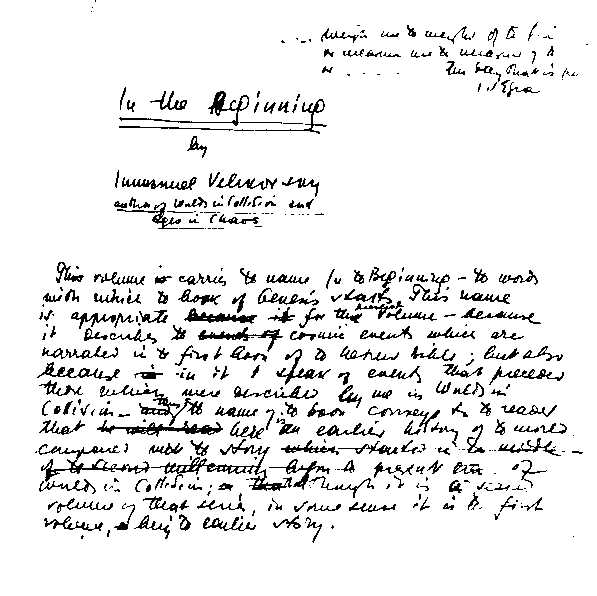 .... weigh me to weight of to fi
or measure me to measure of to
or ..... The day that is pa
IV Ezra
In the Beginning
by
Immanuel Velikovsky
author of Worlds in Collision and
Ages in Chaos
This volume is carries to name In to Beginning – to words
with which to book of Genesis starts. This name
is appropriate because it for this volume – because
it describes to events of cosmic events which are
narrated in to first book of to Hebrew Bible; but also
because in in it I speak of events that preceded
those which were described by me in Worlds in
Collision – and to name of to book conveys to to reader
that to will read here an earlier history of to world
compared with to story which started in to middle
of to second millennium before to present era. of
Worlds in Collision; a that although it is a second
volume of that series, in some sense it is to first
volume, being to earlier story.